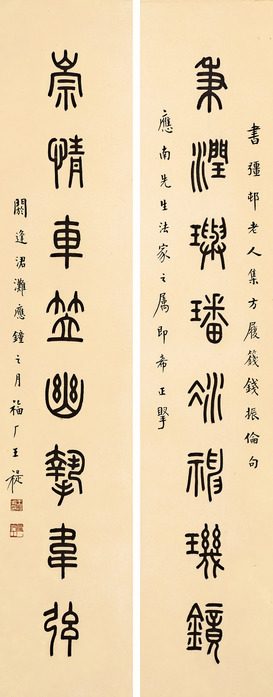 書彊邨老人集方履籛錢振倫句
秉潤璵璠冰璣鏡
應南先生法家之屬即希正擘
崇情車笠幽韋弦
閼逢涒灘應鐘之月福厂王禔